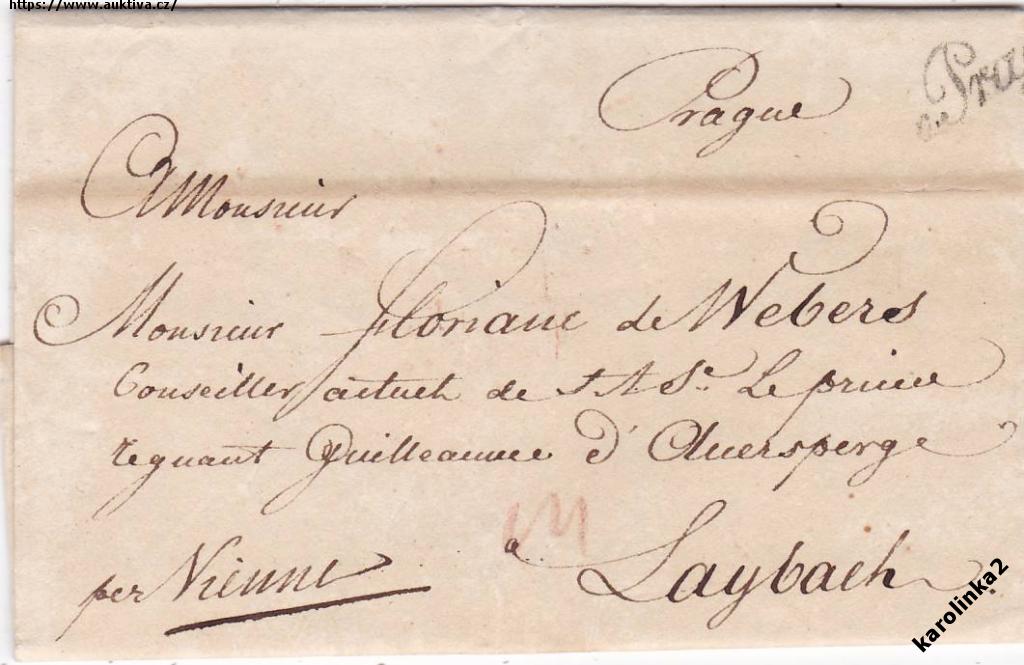 https://www.auktiva.cz/
Prague
Pra
A Monsieur
Monsieur Floriane de Webers
Conseiller actuel de S A Se Le prince
regnant Guilleaume d'Auersperge
a Laybach
per Vienne
karolinka2